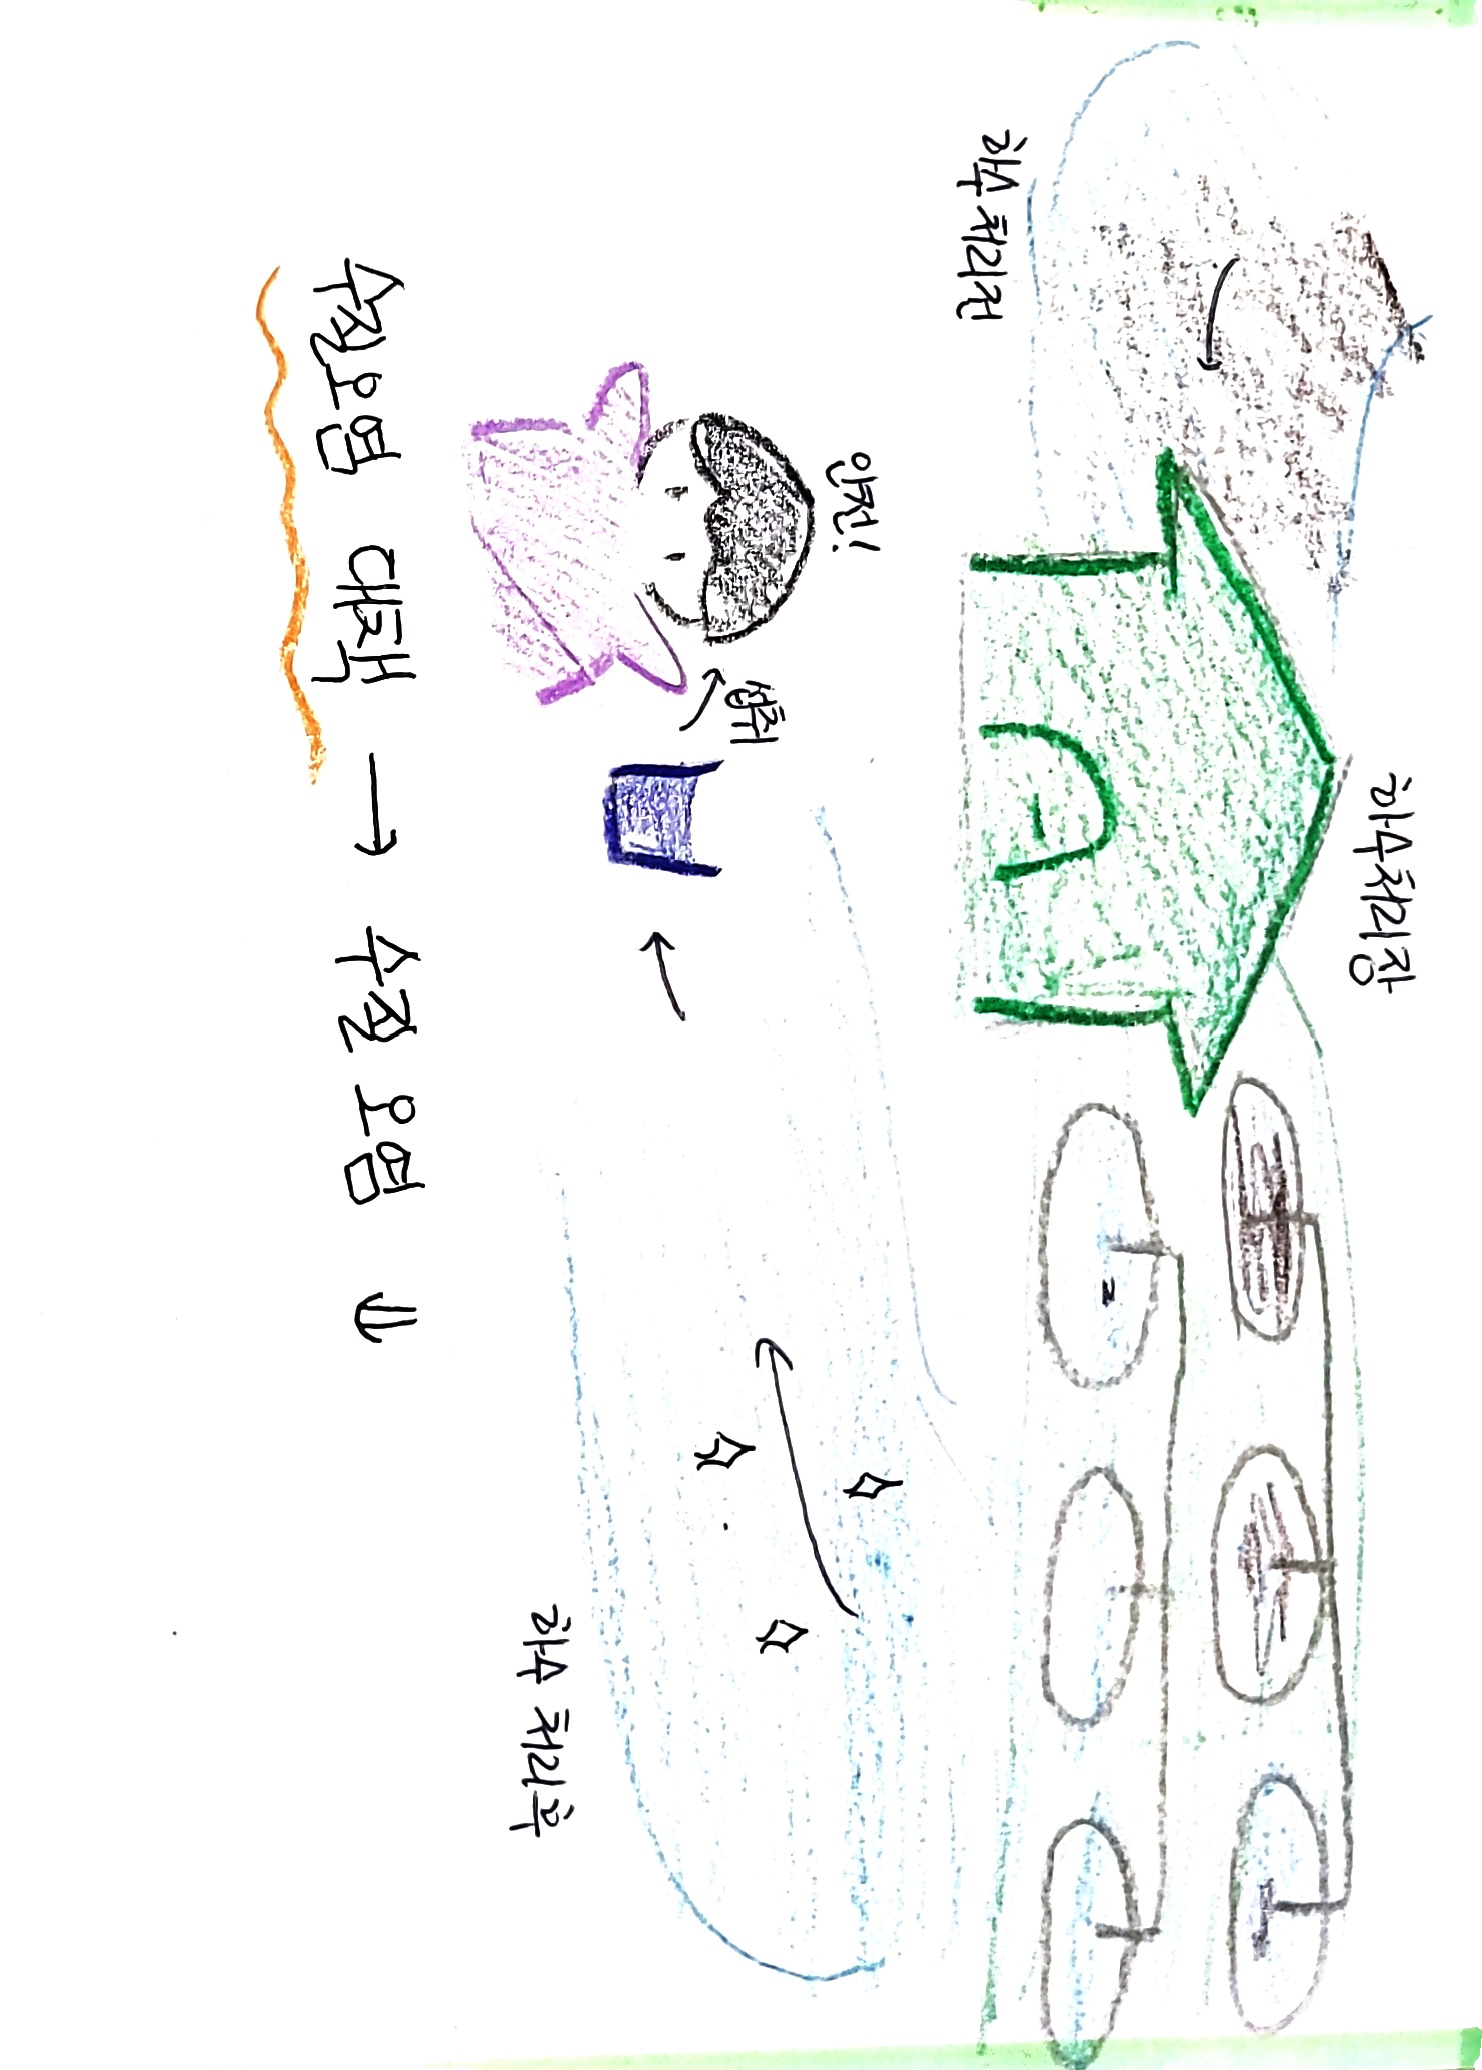 하수처리장
하수 처리전
안전!
섭취
하수 처리후
수질오염 대책 → 수질 오염 ↓